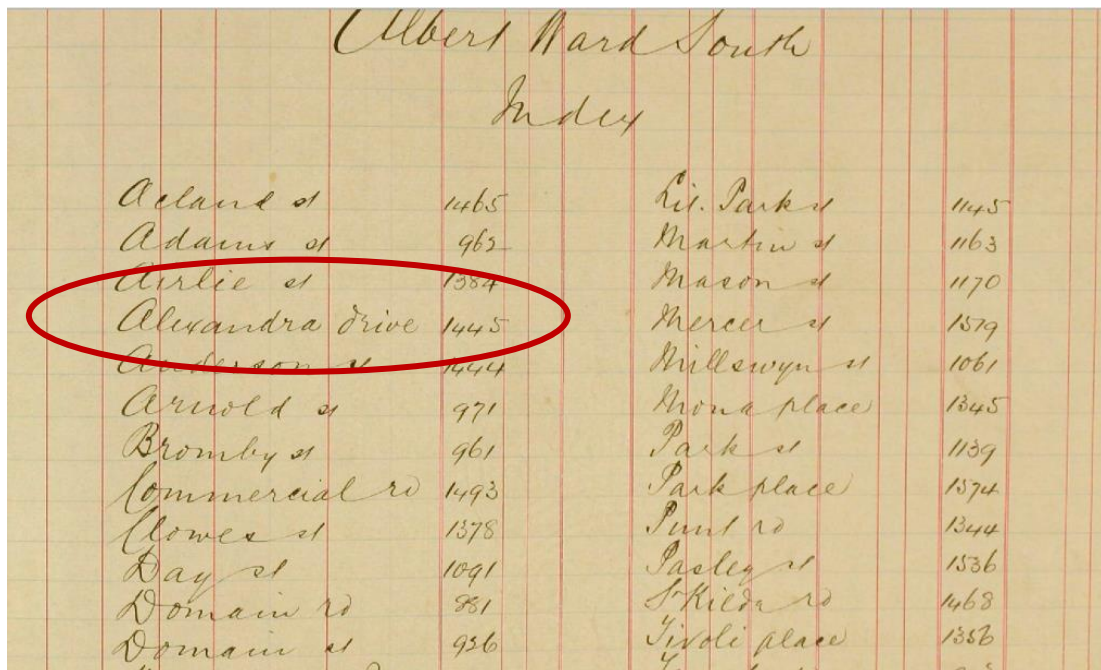 Albert Ward South
Index
Acland st 1465
Adams st 962
Airlie st 1384
Alexandra drive 1445
Anderson st 1444
Arnold st 971
Bromby st 961
Commercial rd 1493
Clowes st 1378
Day st 1091
Domain rd 881
Domain st 926
Lit. Park st 1145
Martin st 1163
Mason st 1170
Mercer st 1579
Millswyn st 1061
Mona place 1345
Park st 1139
Park place 1574
Punt rd 1344
Pasley st 1536
St Kilda rd 1468
Tivoli place 1356